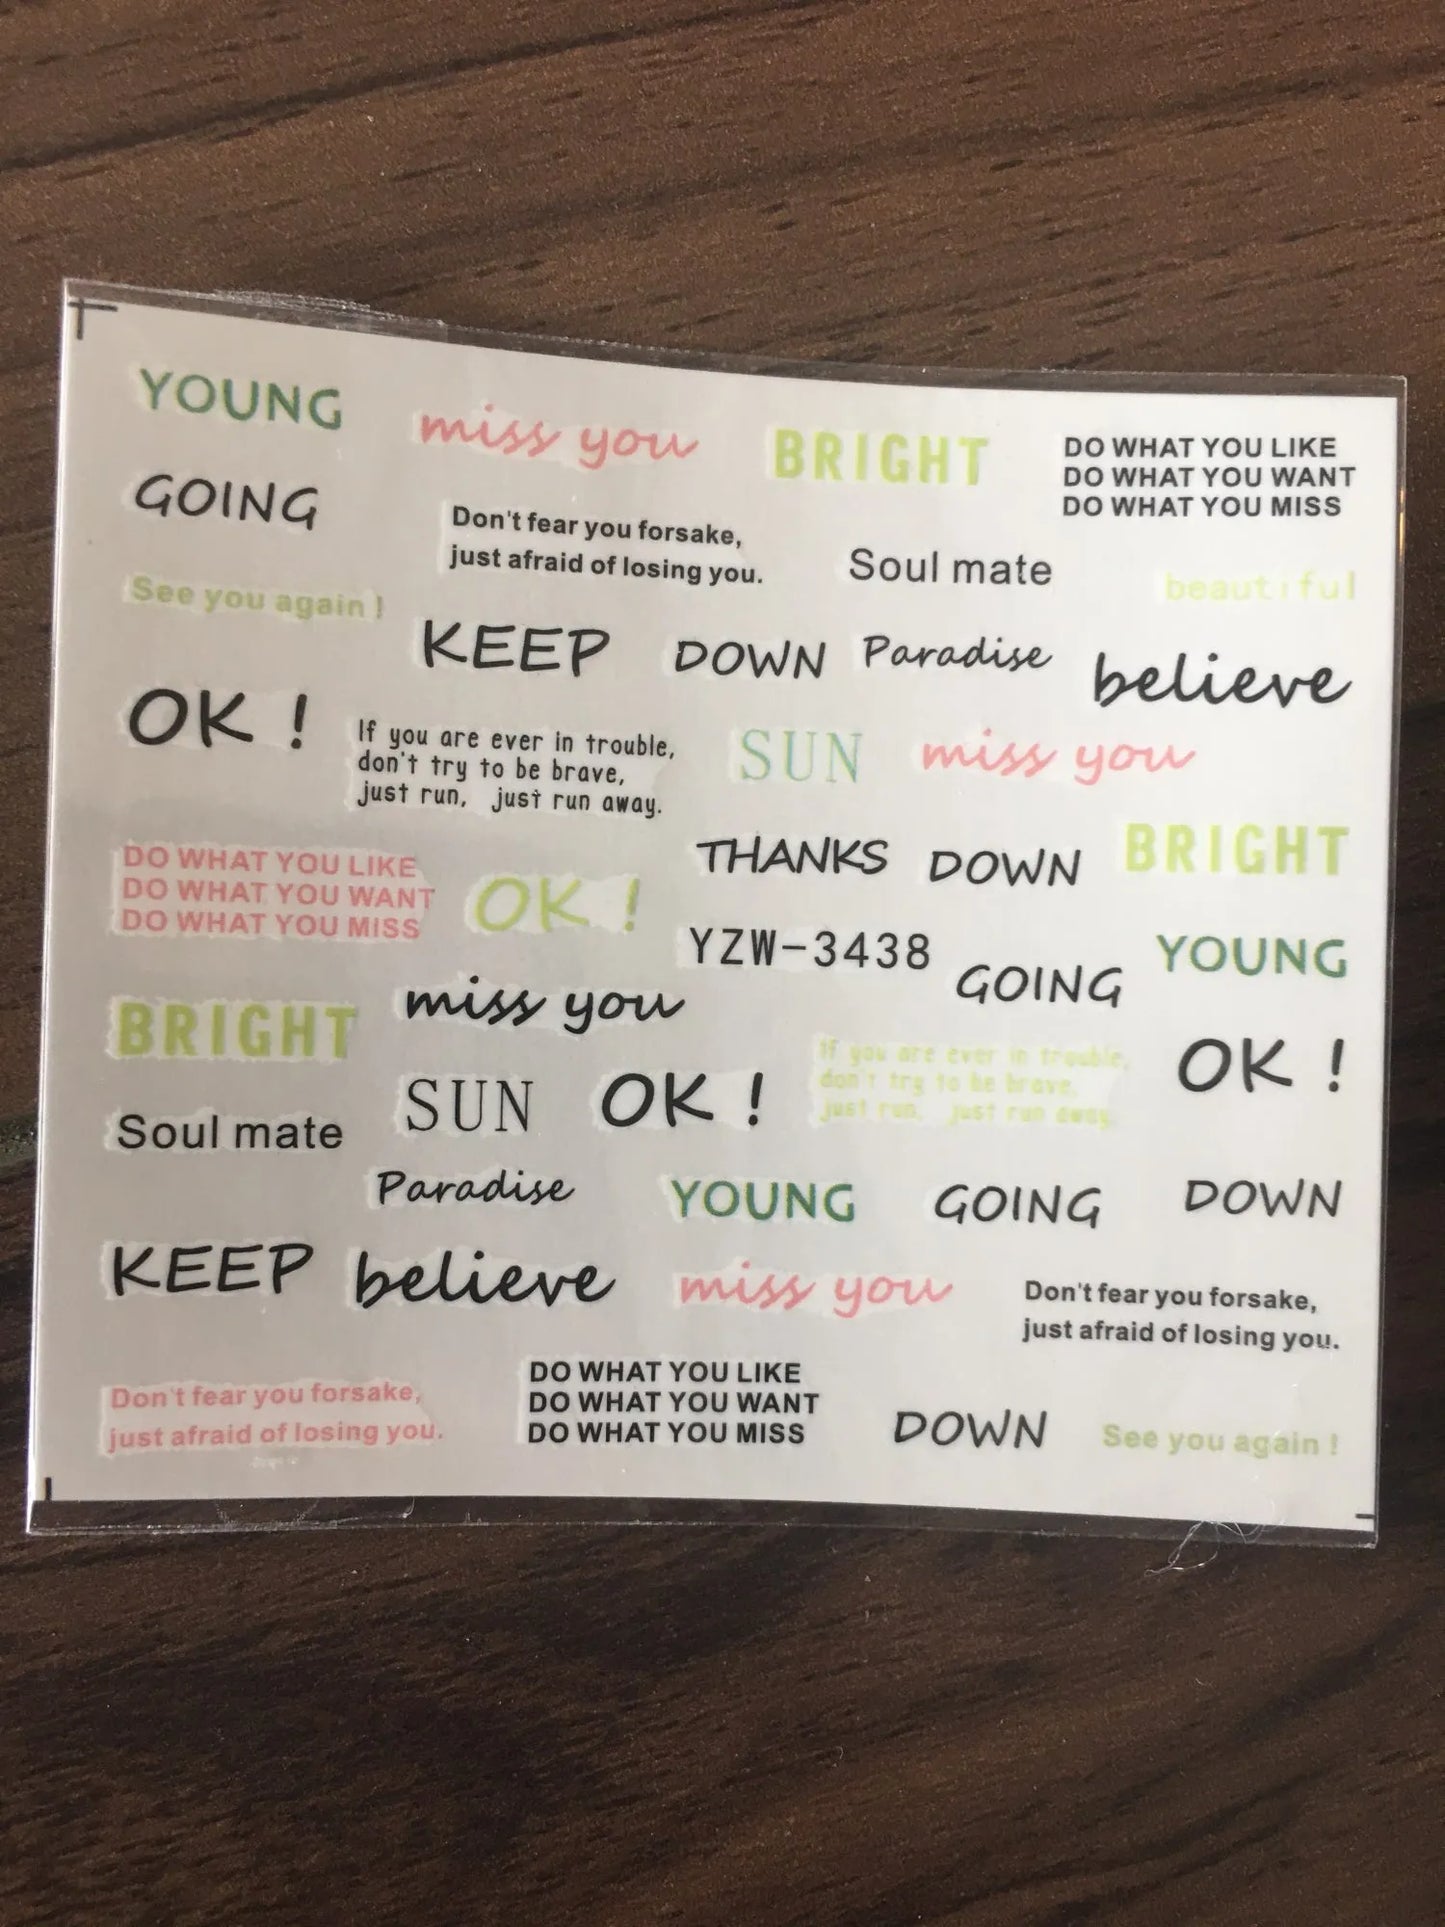 YOUNG
miss you
BRIGHT
DO WHAT YOU LIKE
DO WHAT YOU WANT
DO WHAT YOU MISS
GOING
Don't fear you forsake,
just afraid of losing you.
Soul mate
beautiful
See you again !
KEEP
DOWN
Paradise
believe
OK !
If you are ever in trouble,
don't try to be brave,
just run, just run away.
SUN
miss you
DO WHAT YOU LIKE
DO WHAT YOU WANT
DO WHAT YOU MISS
OK !
THANKS
DOWN
BRIGHT
YZW-3438
GOING
YOUNG
BRIGHT
miss you
SUN
OK !
If you are ever in trouble,
don't try to be brave,
just run, just run away.
OK !
Soul mate
Paradise
YOUNG
GOING
DOWN
KEEP
believe
miss you
Don't fear you forsake,
just afraid of losing you.
Don't fear you forsake,
just afraid of losing you.
DO WHAT YOU LIKE
DO WHAT YOU WANT
DO WHAT YOU MISS
DOWN
See you again !